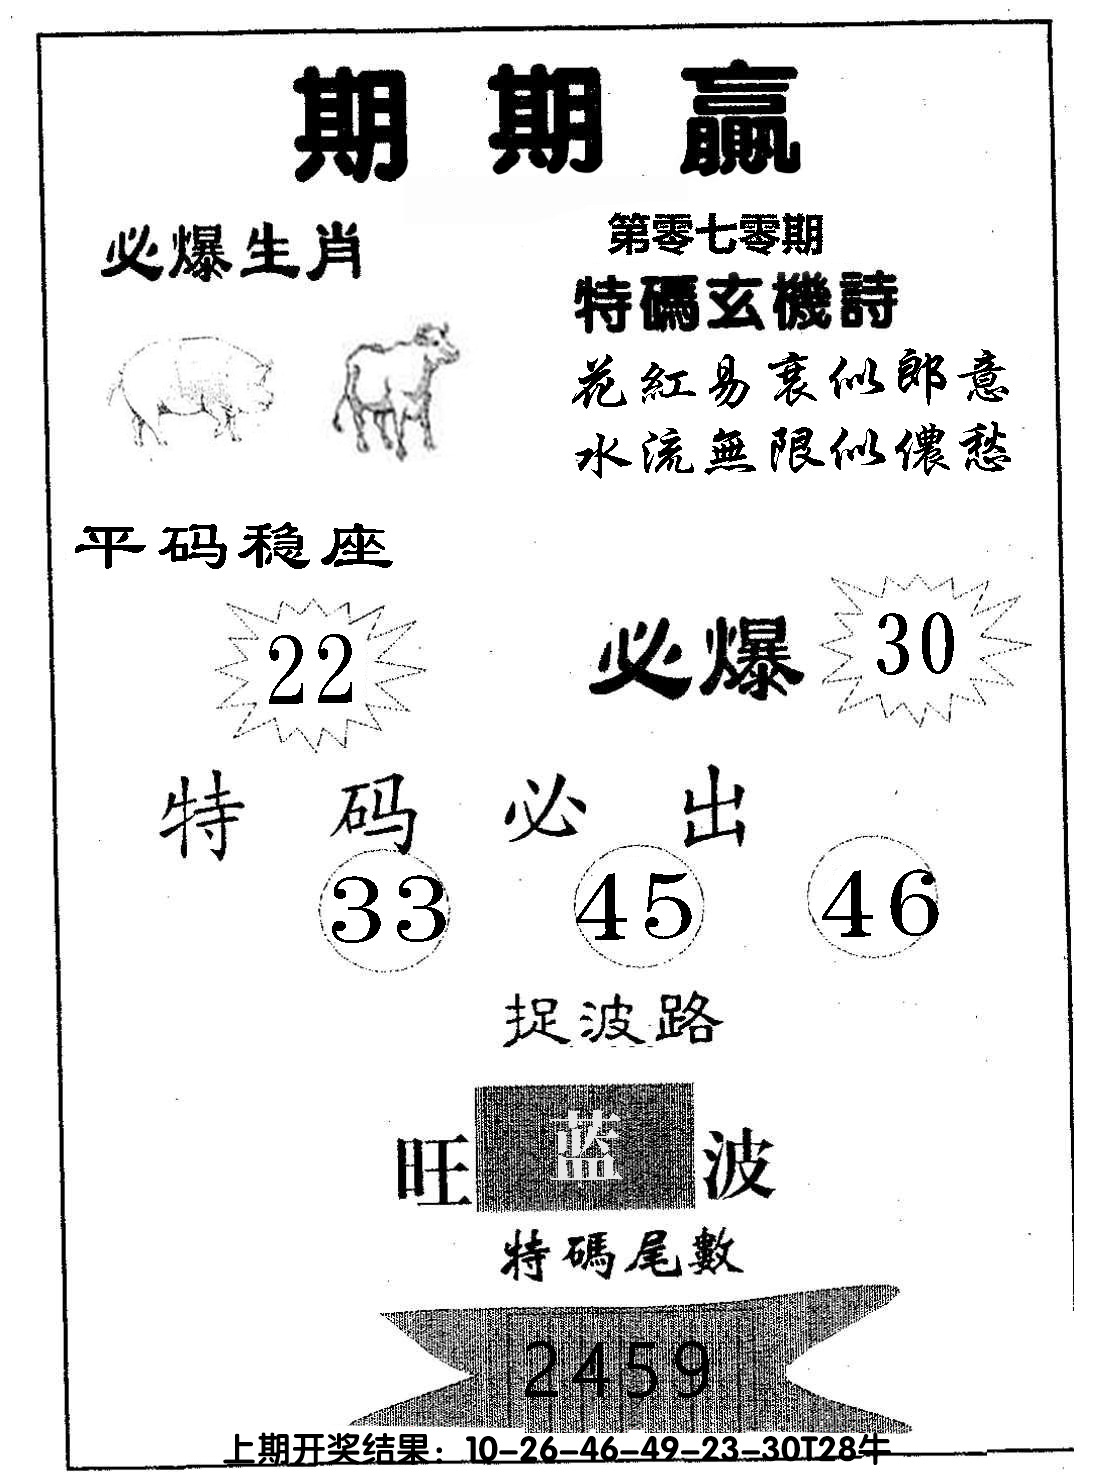 期期贏
必爆生肖
第零七零期
特碼玄機詩
花紅易衰似郎意
水流無限似儂愁
平码稳座
22
必爆 30
特码必出
33 45 46
捉波路
旺 蓝 波
特碼尾數
2459
上期开奖结果：10-26-46-49-23-30T28牛